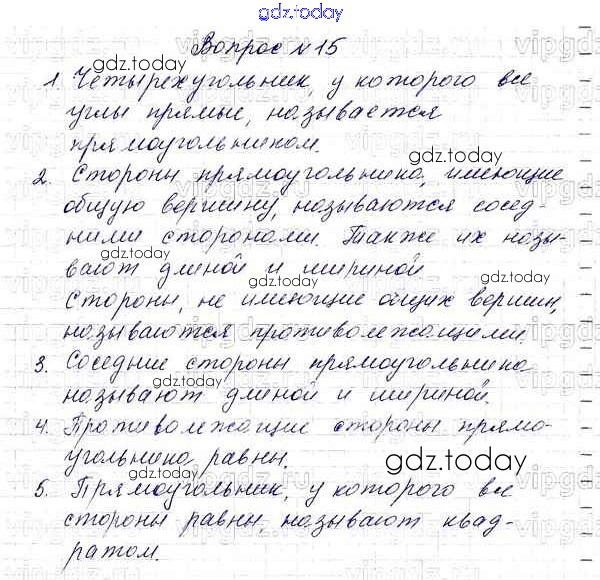 gdz.today
Вопрос №15
1. Четырехугольник, у которого все
углы прямые, называется
прямоугольником.
gdz.today
2. Стороны прямоугольника, имеющие
общую вершину, называются сосед-
gdz.today
ними сторонами. Также их назы-
вают длиной и шириной
gdz.today
Стороны, не имеющие общих вершин,
называются противолежащими.
3. Соседние стороны прямоугольника
называют длиной и шириной.
gdz.today
4. Противолежащие стороны прямо-
угольника равны.
gdz.today
5. Прямоугольник, у которого все
стороны равны, называют квад-
gdz.today
ратом.